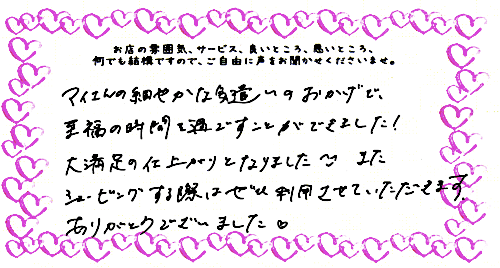 お店の雰囲気、サービス、良いところ、悪いところ、
何でも結構ですので、ご自由に声をお聞かせくださいませ。
マイさんの細やかな気遣いのおかげで、
至福の時間を過ごすことができました！
大満足の仕上がりとなりました また
シェービングする際はぜひ利用させていただきます。
ありがとうございました